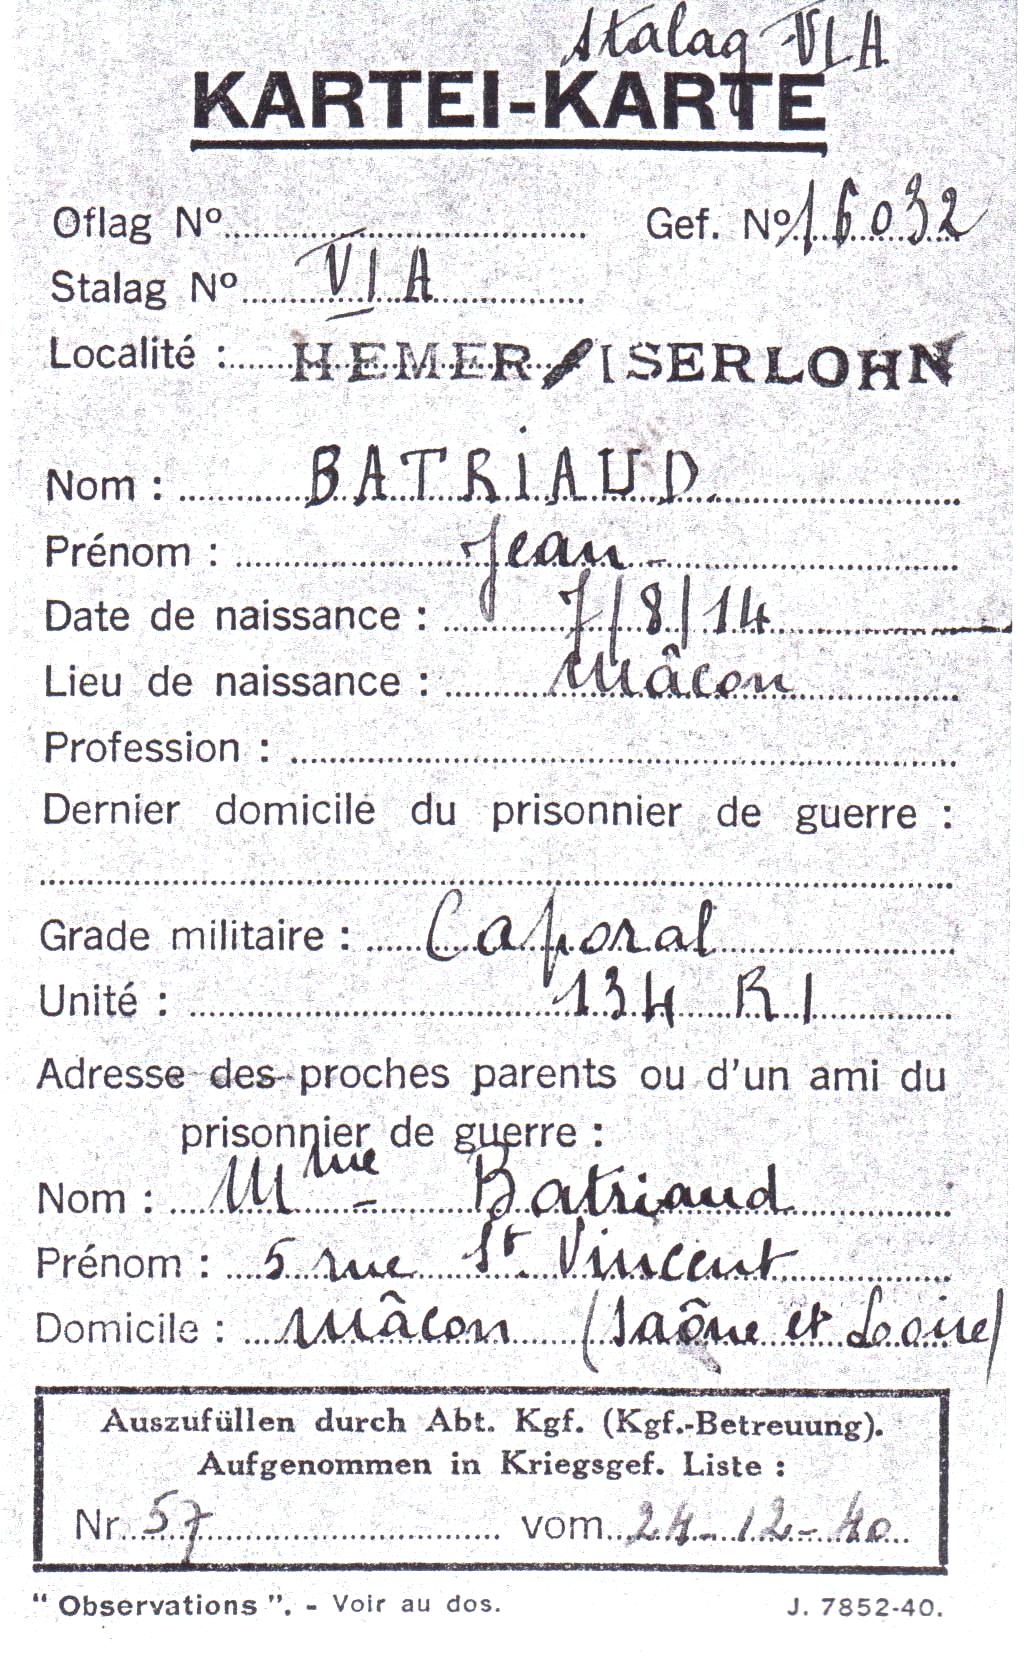 Stalag VI A
KARTEI-KARTE
Oflag Nº.................................... Gef. Nº 16032
Stalag Nº.....VI A.....
Localité :......HEMER/ISERLOHN
Nom : .....BATRIAUD.....
Prénom : .....Jean.....
Date de naissance : .....7/8/14.....
Lieu de naissance : .....Mâcon.....
Profession : ..........................................
Dernier domicile du prisonnier de guerre :
..........................................
Grade militaire : .....Caporal.....
Unité : .....134 RI.....
Adresse des proches parents ou d'un ami du
prisonnier de guerre :
Nom : ....Mme Batriaud.....
Prénom : ....5 rue St. Vincent.....
Domicile : ....Mâcon (Saône et Loire)
Auszufüllen durch Abt. Kgf. (Kgf.-Betreuung).
Aufgenommen in Kriegsgef. Liste :
Nr...57..... vom...24-12-40..
" Observations ". - Voir au dos. J. 7852-40.